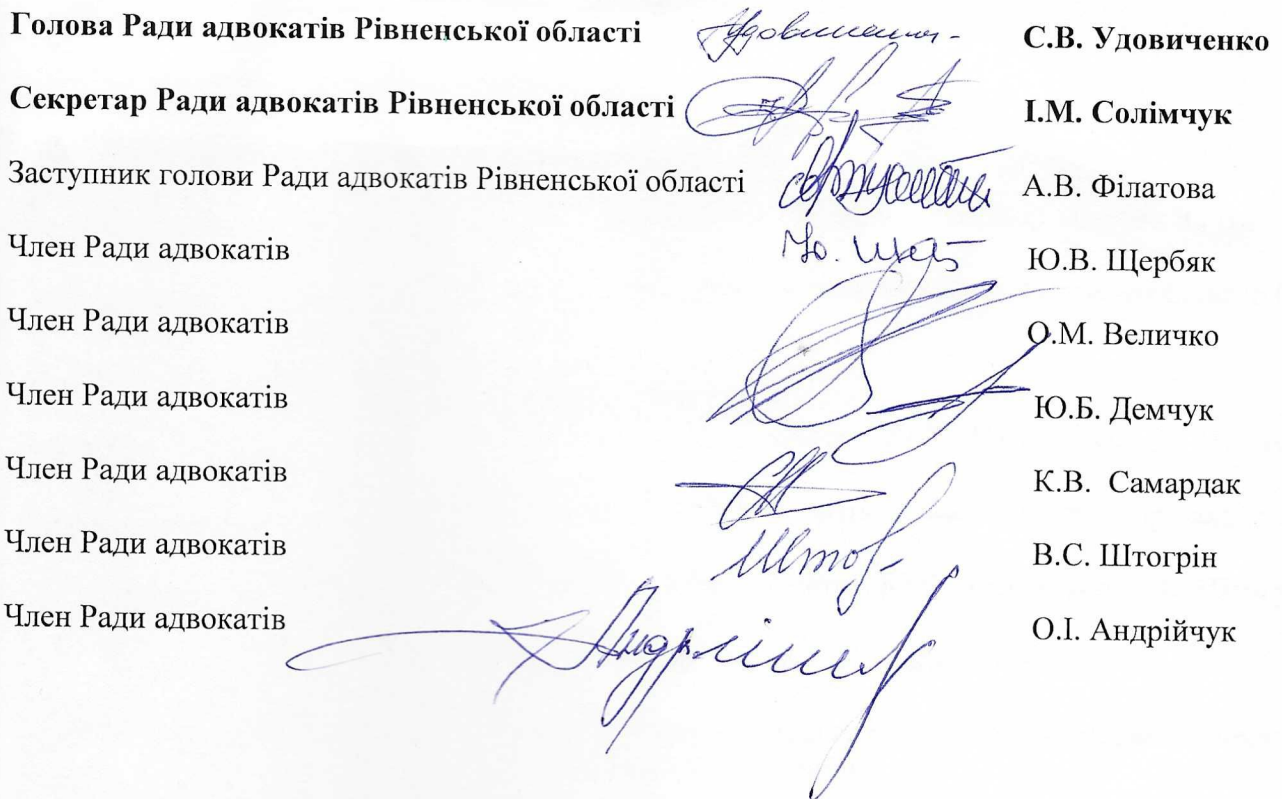 Голова Ради адвокатів Рівненської області С.В. Удовиченко
Секретар Ради адвокатів Рівненської області І.М. Солімчук
Заступник голови Ради адвокатів Рівненської області А.В. Філатова
Член Ради адвокатів Ю.В. Щербяк
Член Ради адвокатів О.М. Величко
Член Ради адвокатів Ю.Б. Демчук
Член Ради адвокатів К.В. Самардак
Член Ради адвокатів В.С. Штогрін
Член Ради адвокатів О.І. Андрійчук